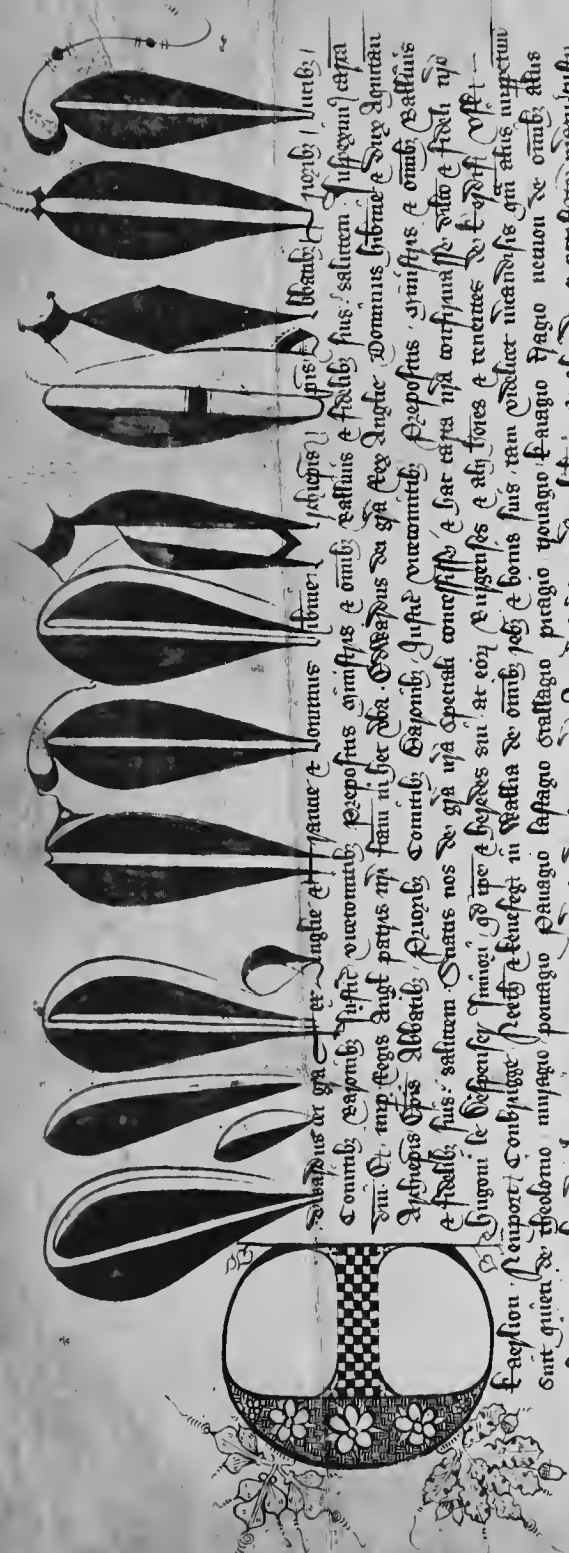 Edwardus dei gra Rex Anglie & Francie & dominus Hibnie Archiepis Epis Abbatibz Prioribz Ducibz
Comitibz Baronibz Justic vicecomitibz Prepositis Ministris & omibz Ballivis & fidelibz suis salutem Inspeximus carta
dni E. nup Regis Angl patris nri fcam in hec verba Edwardus dei gra Rex Anglie Dominus Hibnie & Dux Aquitan
Archiepis Epis Abbatibz Prioribz Comitibz Baronibz Justic vicecomitibz Prepositis Ministris & omibz Ballivis
& fidelibz suis salutem Sciatis nos de gra nra speciali concessisse & hac carta nra confirmasse dilco & fideli nro
Hugoni le Despenser Juniori qd ipe & heredes sui ac eor Burgenses & alij hoies & tenentes de Kerdif Usk
Kaerlion Neuport Coubrigge Neeth & Kenefeg in Wallia de omibz rebz & bonis suis tam videlicet mcandisis qm aliis imppetuu
sint quieti de theolonio muragio pontagio Pavagio lastagio stallagio picagio tronagio kaiagio necnon de omibz aliis